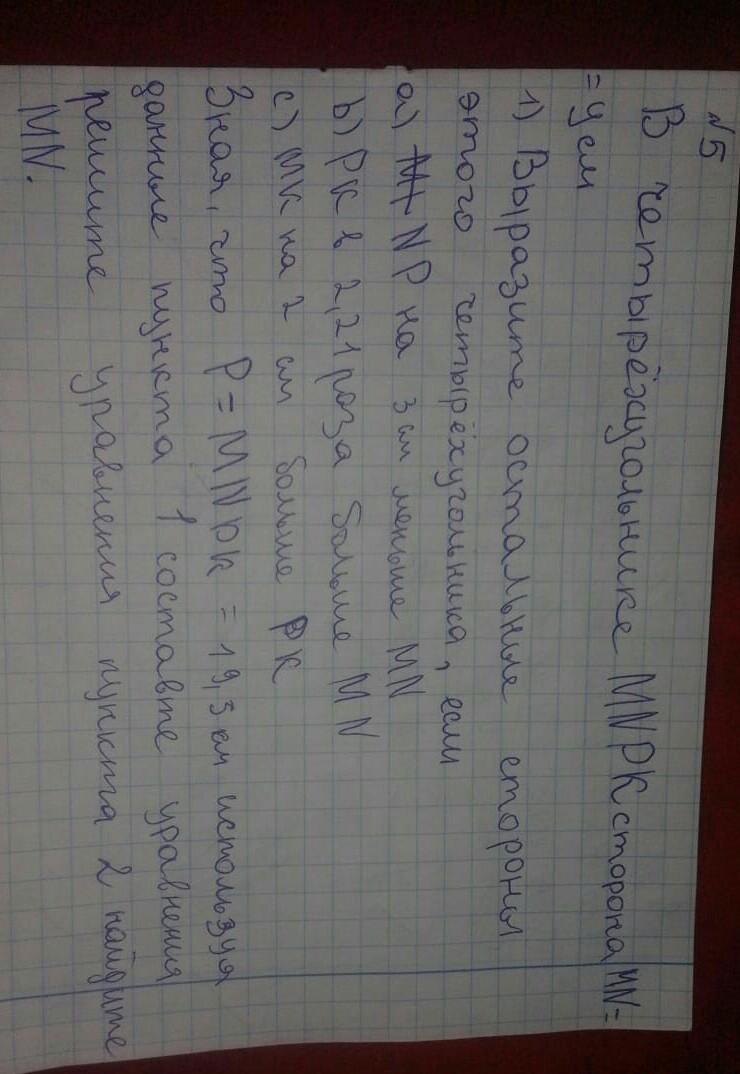 №5
В четырёхугольнике MNPK сторона MN=
= y см
1) Выразите остальные стороны
этого четырёхугольника, если
a) NP на 3 см меньше MN
b) PK в 2,21 раза больше MN
c) MK на 2 см больше PK
Зная, что P = MNPK = 19,3 см используя
данные пункта 1 составте уравнения
решите уравнения пункта 2 найдите
MN.